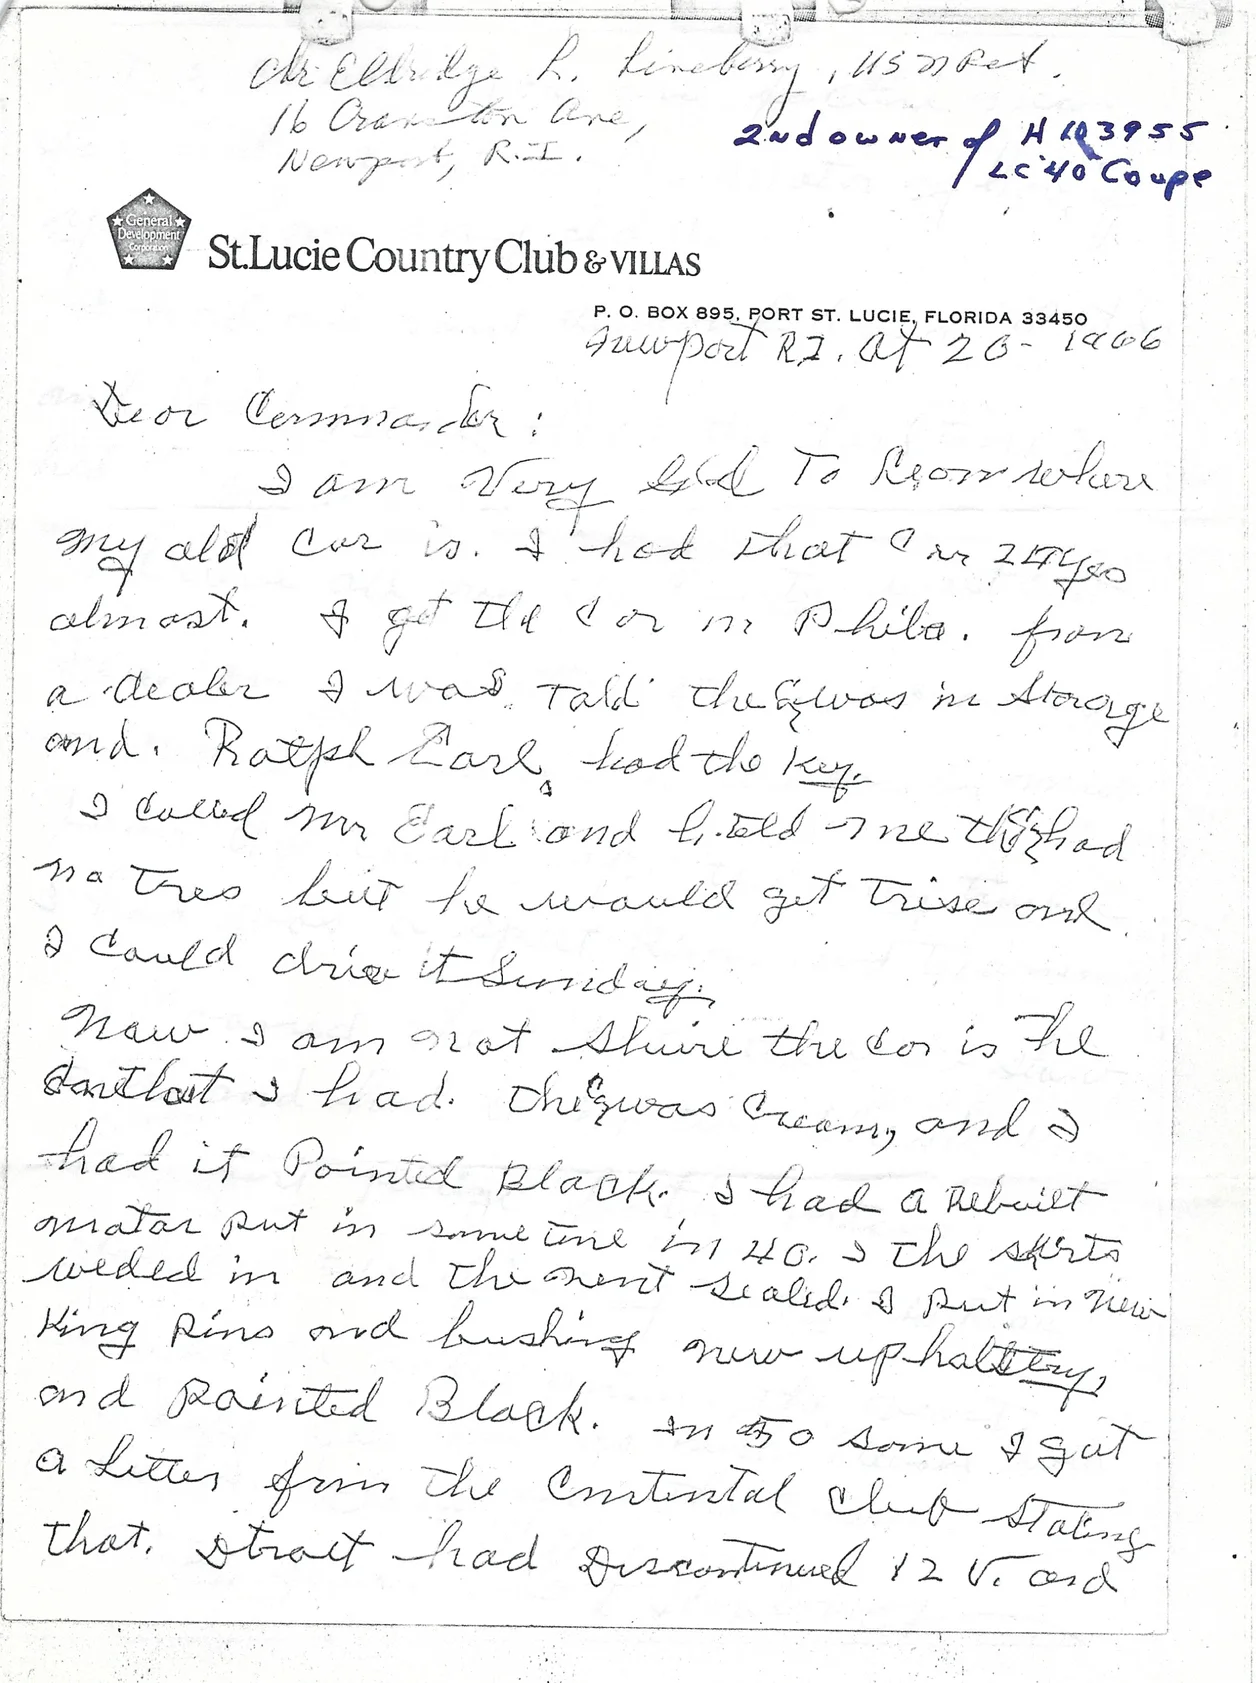 Eldridge L. Lineberry, USN Ret.
16 Cranston Ave,
Newport, R.I.
2nd owner of H 3955
LC '40 Coupe
General
Development
Corporation
St.Lucie Country Club & VILLAS
P. O. BOX 895, PORT ST. LUCIE, FLORIDA 33450
Newport RI. 20-
Dear Commander:
I am Very Glad To where
my old Car is. I had that Car
almost. I got the Car in Phila. from
a dealer I was Told the was in Storage
and. Ralph Earl had the Key.
I Called Mr Earl and h. told me the had
no Tres but he would get and
I Could drive it Sunday.
Now I am not Shure the Car is The
Car that I had. The was Cream, and I
had it Pointed Black. I had a Rebuilt
motar put in some time in 40. I the skirts
weded in and the sealed. I put in New
King Pins and bushing new
and Painted Black. In 50 some I got
a Letter from the Contental Club Stating
that. had Discontinued 12 V. and